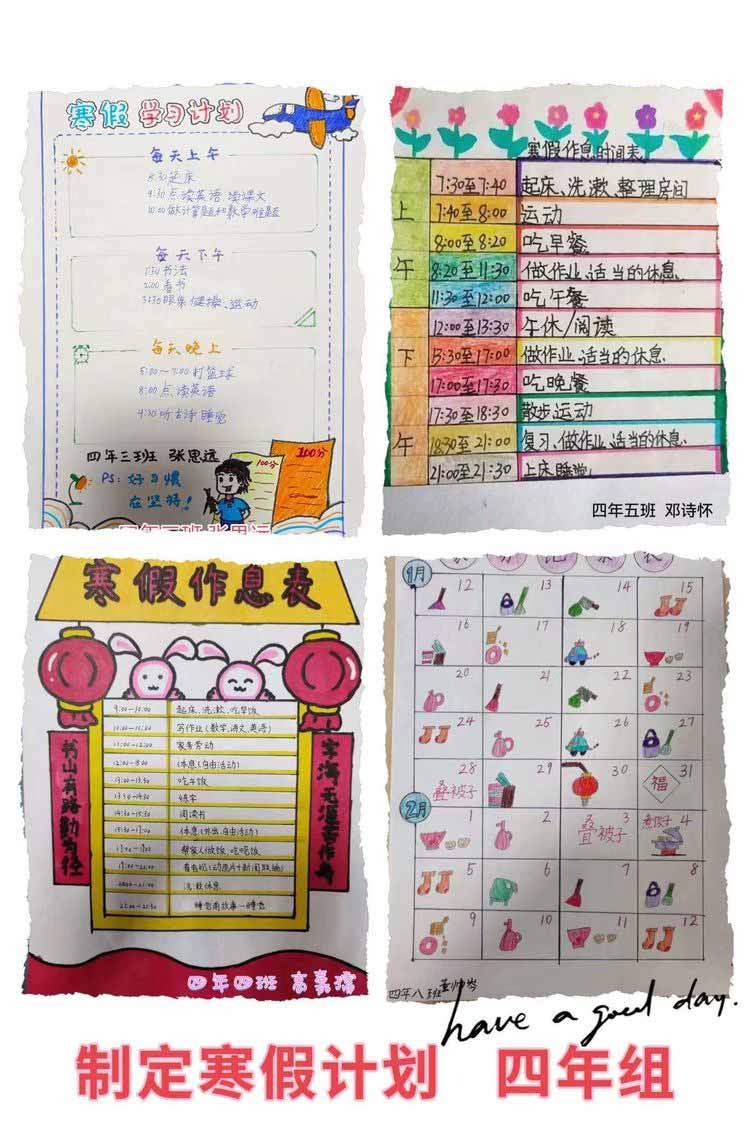 寒假 学习计划
每天上午
8:30起床
9:30点读英语、读课文
10:00做计算题和数学难题
每天下午
1:30书法
2:00看书
3:30眼保健操、运动
每天晚上
5:00~7:00打篮球
8:00点读英语
9:30听古诗 睡觉
四年三班 张思远
PS: 好习惯
在坚持!
100分
100分
四年三班 张思远
寒假作息时间表
上午
7:30至7:40 起床、洗漱、整理房间
7:40至8:00 运动
8:00至8:20 吃早餐
8:20至11:30 做作业、适当的休息
11:30至12:00 吃午餐
下午
12:00至13:30 午休/阅读
13:30至17:00 做作业、适当的休息
17:00至17:30 吃晚餐
17:30至18:30 散步、运动
18:30至21:00 复习、做作业、适当的休息
21:00至21:30 上床睡觉
四年五班 邓诗怀
寒假作息表
书山有路勤为径
学海无涯苦作舟
9:00—10:00 起床、洗漱、吃早饭
10:00—11:00 写作业(数学、语文、英语)
11:00—12:00 家务劳动
12:00—13:00 休息(自由活动)
13:00—13:30 吃午饭
13:30—14:30 练字
阅读书
休息(外出、自由活动)
帮家人做饭、吃晚饭
看电视(动画片+新闻联播)
洗漱休息
21:00—21:30 睡前故事—睡觉
四年四班 高嘉
1月
12 13 14 15
16 17 18 19
20 21 22 23
24 25 26 27
28 29 30 31
叠被子 福
2月
1 2 3 4
叠被子 煮饺子
5 6 7 8
9 10 11 12
四年八班
have a good day.
制定寒假计划 四年组